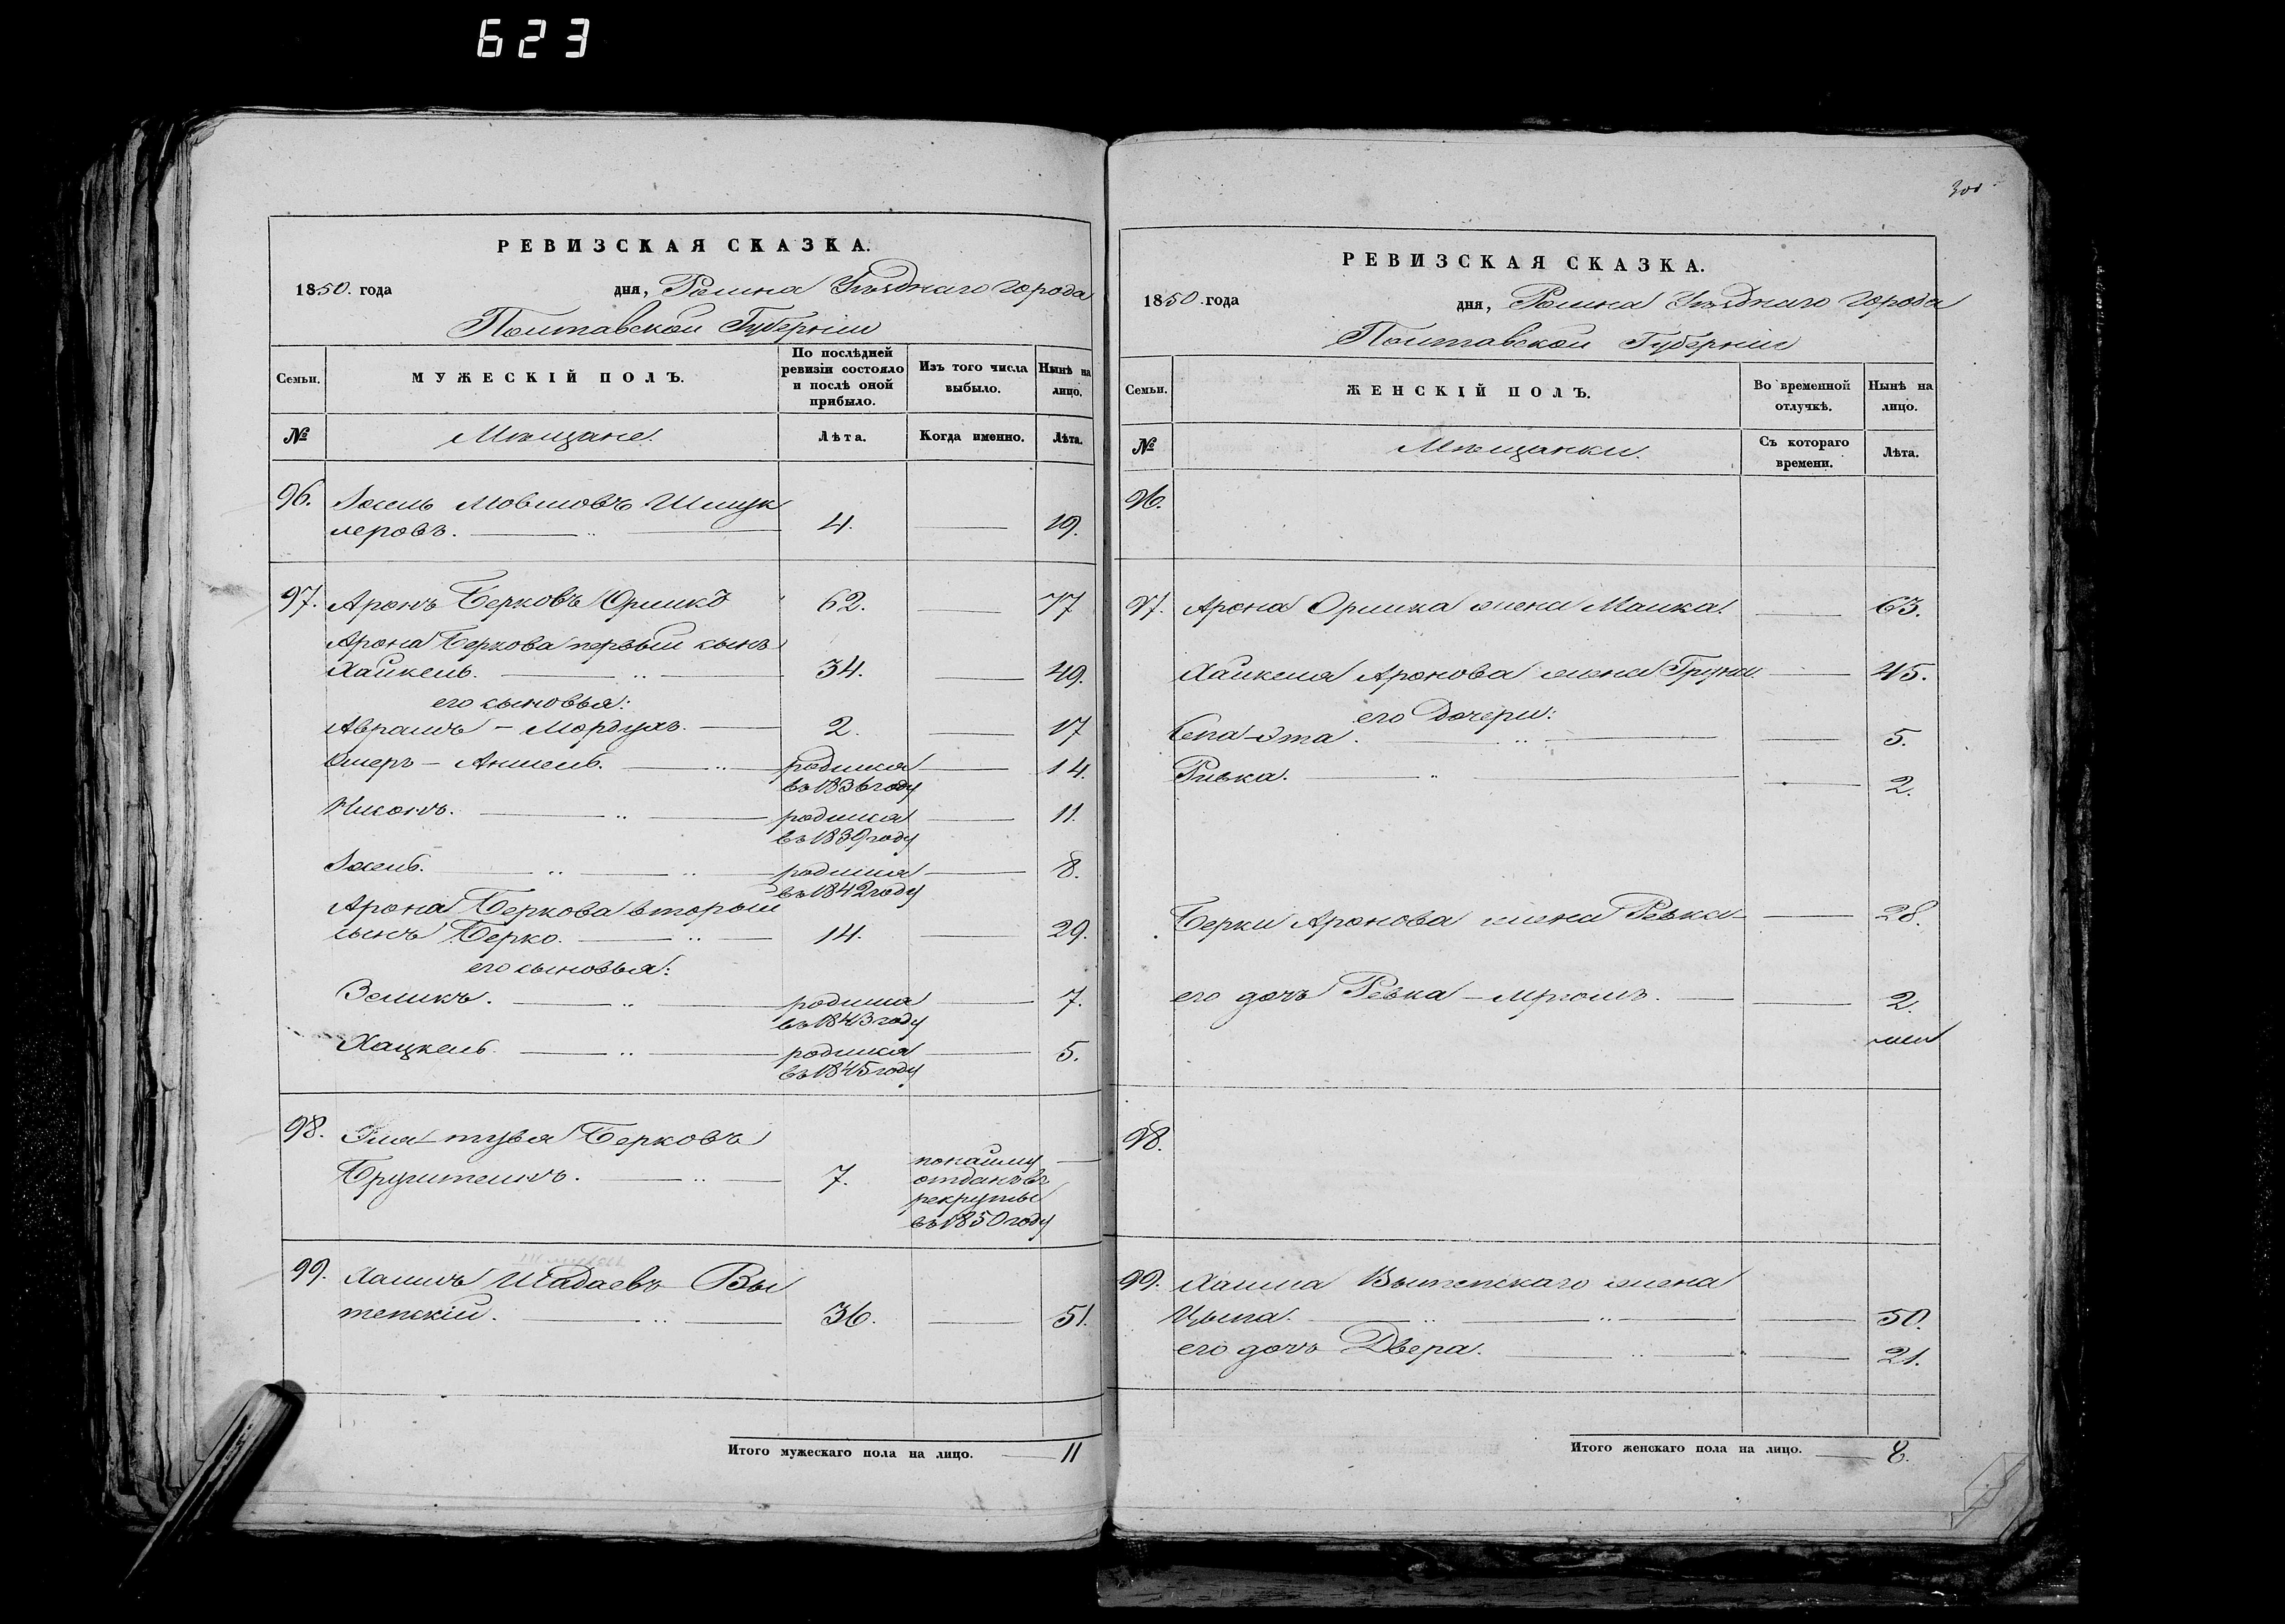 623
300
РЕВИЗСКАЯ СКАЗКА.
1850. года дня, Ромна Уѣзднаго города
Полтавской Губерніи
Семьи. МУЖЕСКІЙ ПОЛЪ. По послѣдней ревизіи состояло и послѣ оной прибыло. Изъ того числа выбыло. Нынѣ на лицо.
№ Мѣщане. Лѣта. Когда именно. Лѣта.
96. Іосель Мовшовъ Шмук
леровъ. 4. 19.
97. Аронъ Берковъ Оришко 62. 77
Арона Беркова первый сынъ
Хайкель. 34. 49.
его сыновья:
Абрамъ - Мордухъ. 2. 17
Ошеръ - Аншель. родился 14.
въ 1836 году
Нисонъ. родился 11.
въ 1839 году
Іосель. родился 8.
въ 1842 году
Арона Беркова вторый
сынъ Берко. 14. 29.
его сыновья:
Зеликъ. родился 7.
въ 1843 году
Хацкель. родился 5.
въ 1845 году
98. Берковъ
7. по найму
отданъ въ
рекруты
въ 1850 году
99. Хаимъ Шадаевъ Вы
тепскій. 36. 51.
Итого мужескаго пола на лицо. 11
РЕВИЗСКАЯ СКАЗКА.
1850 года дня, Ромна Уѣзднаго города
Полтавской Губерніи
Семьи. ЖЕНСКІЙ ПОЛЪ. Во временной отлучкѣ. Нынѣ на лицо.
№ Мѣщанки. Съ котораго времени. Лѣта.
96.
97. Арона Оришка жена Малка. 63.
Хайкеля Аронова жена Груня 45.
его дочери:
Сепа-Эта. 5.
Ривка. 2.
Берки Аронова жена Ревка 28.
его дочь Ревка - 2.
98.
99. Хаима Вытепскаго жена
Цыпа. 50.
его дочь Двера. 21.
Итого женскаго пола на лицо. 8.